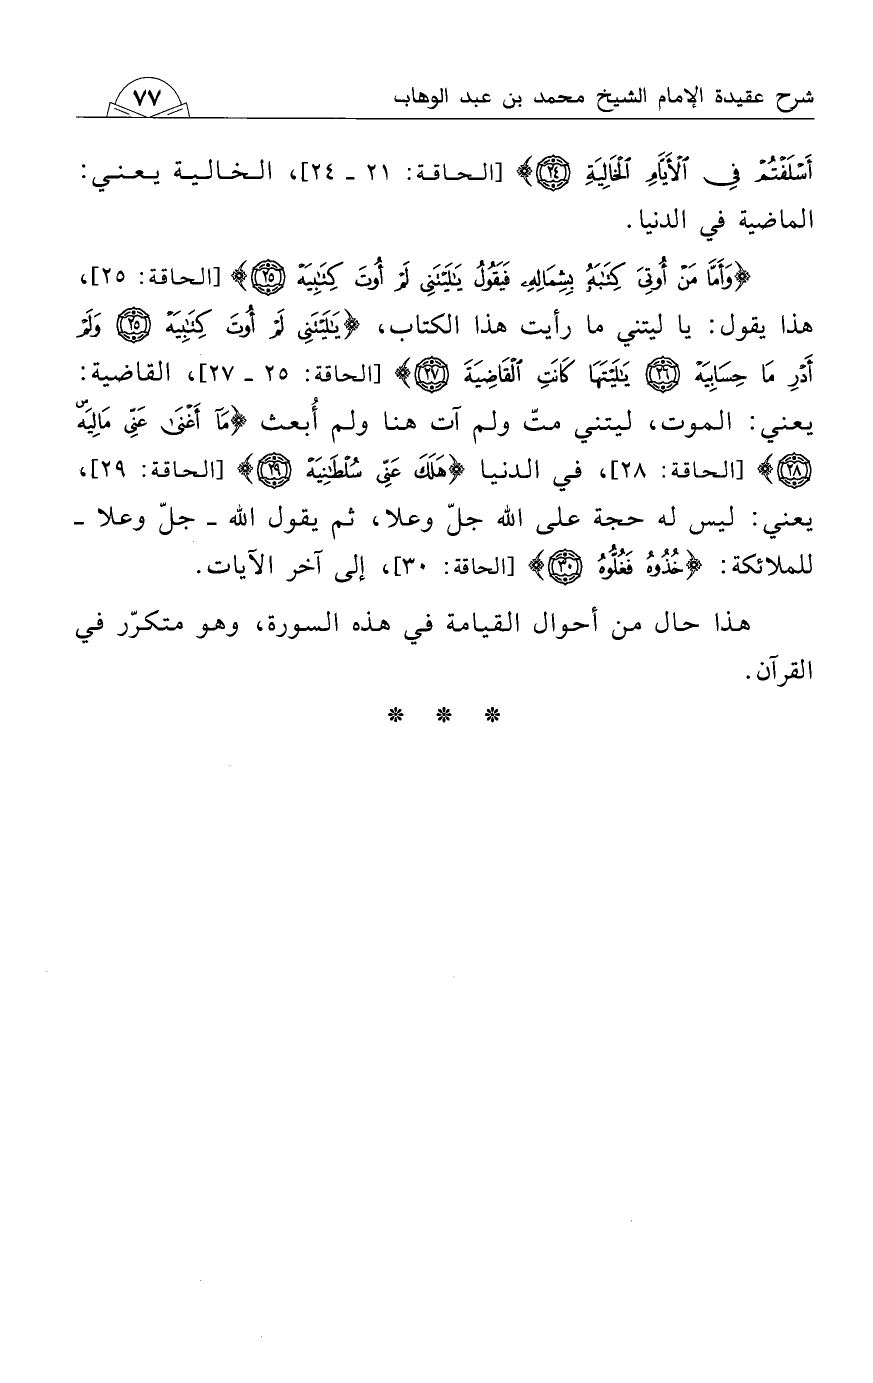 شرح عقيدة الإمام الشيخ محمد بن عبد الوهاب ٧٧
أَسْلَفْتُمْ فِي ٱلْأَيَّامِ ٱلْخَالِيَةِ ﴿٢٤﴾﴾ [الحاقة: ٢١ ـ ٢٤]، الخالية يعني:
الماضية في الدنيا.
﴿وَأَمَّا مَنْ أُوتِيَ كِتَٰبَهُۥ بِشِمَالِهِۦ فَيَقُولُ يَٰلَيْتَنِي لَمْ أُوتَ كِتَٰبِيَهْ ﴿٢٥﴾﴾ [الحاقة: ٢٥]،
هذا يقول: يا ليتني ما رأيت هذا الكتاب، ﴿يَٰلَيْتَنِي لَمْ أُوتَ كِتَٰبِيَهْ ﴿٢٥﴾ وَلَمْ
أَدْرِ مَا حِسَابِيَهْ ﴿٢٦﴾ يَٰلَيْتَهَا كَانَتِ ٱلْقَاضِيَةَ ﴿٢٧﴾﴾ [الحاقة: ٢٥ ـ ٢٧]، القاضية:
يعني: الموت، ليتني متّ ولم آت هنا ولم أُبعث ﴿مَآ أَغْنَىٰ عَنِّي مَالِيَهْۜ
﴿٢٨﴾﴾ [الحاقة: ٢٨]، في الدنيا ﴿هَلَكَ عَنِّي سُلْطَٰنِيَهْ ﴿٢٩﴾﴾ [الحاقة: ٢٩]،
يعني: ليس له حجة على الله جلّ وعلا، ثم يقول الله ـ جلّ وعلا ـ
للملائكة: ﴿خُذُوهُ فَغُلُّوهُ ﴿٣٠﴾﴾ [الحاقة: ٣٠]، إلى آخر الآيات.
هذا حال من أحوال القيامة في هذه السورة، وهو متكرّر في
القرآن.
* * *